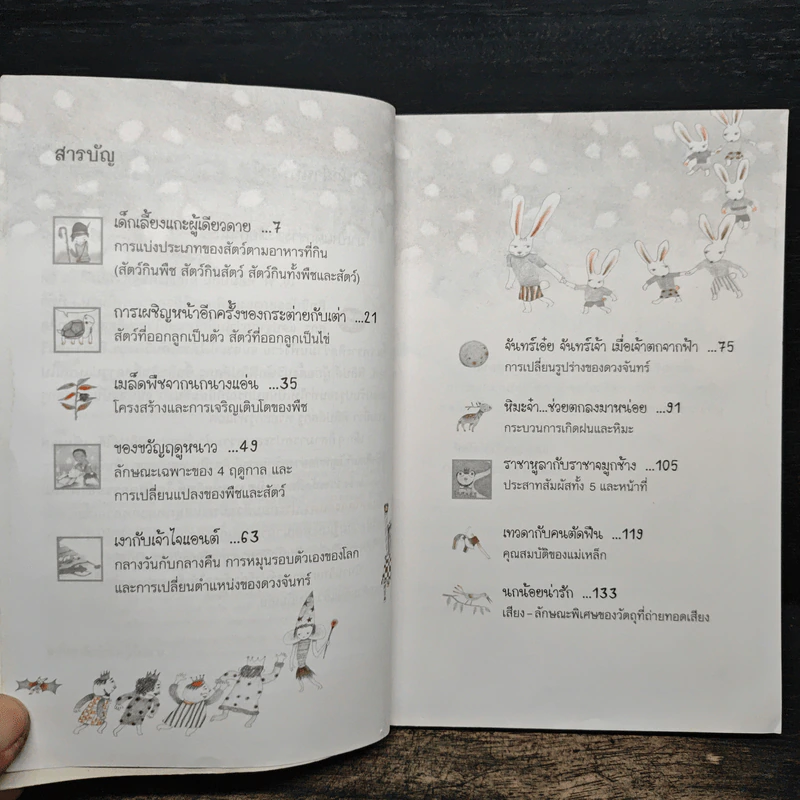 สารบัญ
เด็กเลี้ยงแกะผู้เดียวดาย ...7
การแบ่งประเภทของสัตว์ตามอาหารที่กิน
(สัตว์กินพืช สัตว์กินสัตว์ สัตว์กินทั้งพืชและสัตว์)
การเผชิญหน้าอีกครั้งของกระต่ายกับเต่า ...21
สัตว์ที่ออกลูกเป็นตัว สัตว์ที่ออกลูกเป็นไข่
เมล็ดพืชจากนกนางแอ่น ...35
โครงสร้างและการเจริญเติบโตของพืช
ของขวัญฤดูหนาว ...49
ลักษณะเฉพาะของ 4 ฤดูกาล และ
การเปลี่ยนแปลงของพืชและสัตว์
เงากับเจ้าไจแอนต์ ...63
กลางวันกับกลางคืน การหมุนรอบตัวเองของโลก
และการเปลี่ยนตำแหน่งของดวงจันทร์
จันทร์เอ๋ย จันทร์เจ้า เมื่อเจ้าตกจากฟ้า ...75
การเปลี่ยนรูปร่างของดวงจันทร์
หิมะจ๋า...ช่วยตกลงมาหน่อย ...91
กระบวนการเกิดฝนและหิมะ
ราชาหูลากับราชาจมูกช้าง ...105
ประสาทสัมผัสทั้ง 5 และหน้าที่
เทวดากับคนตัดฟืน ...119
คุณสมบัติของแม่เหล็ก
นกน้อยน่ารัก ...133
เสียง - ลักษณะพิเศษของวัตถุที่ถ่ายทอดเสียง